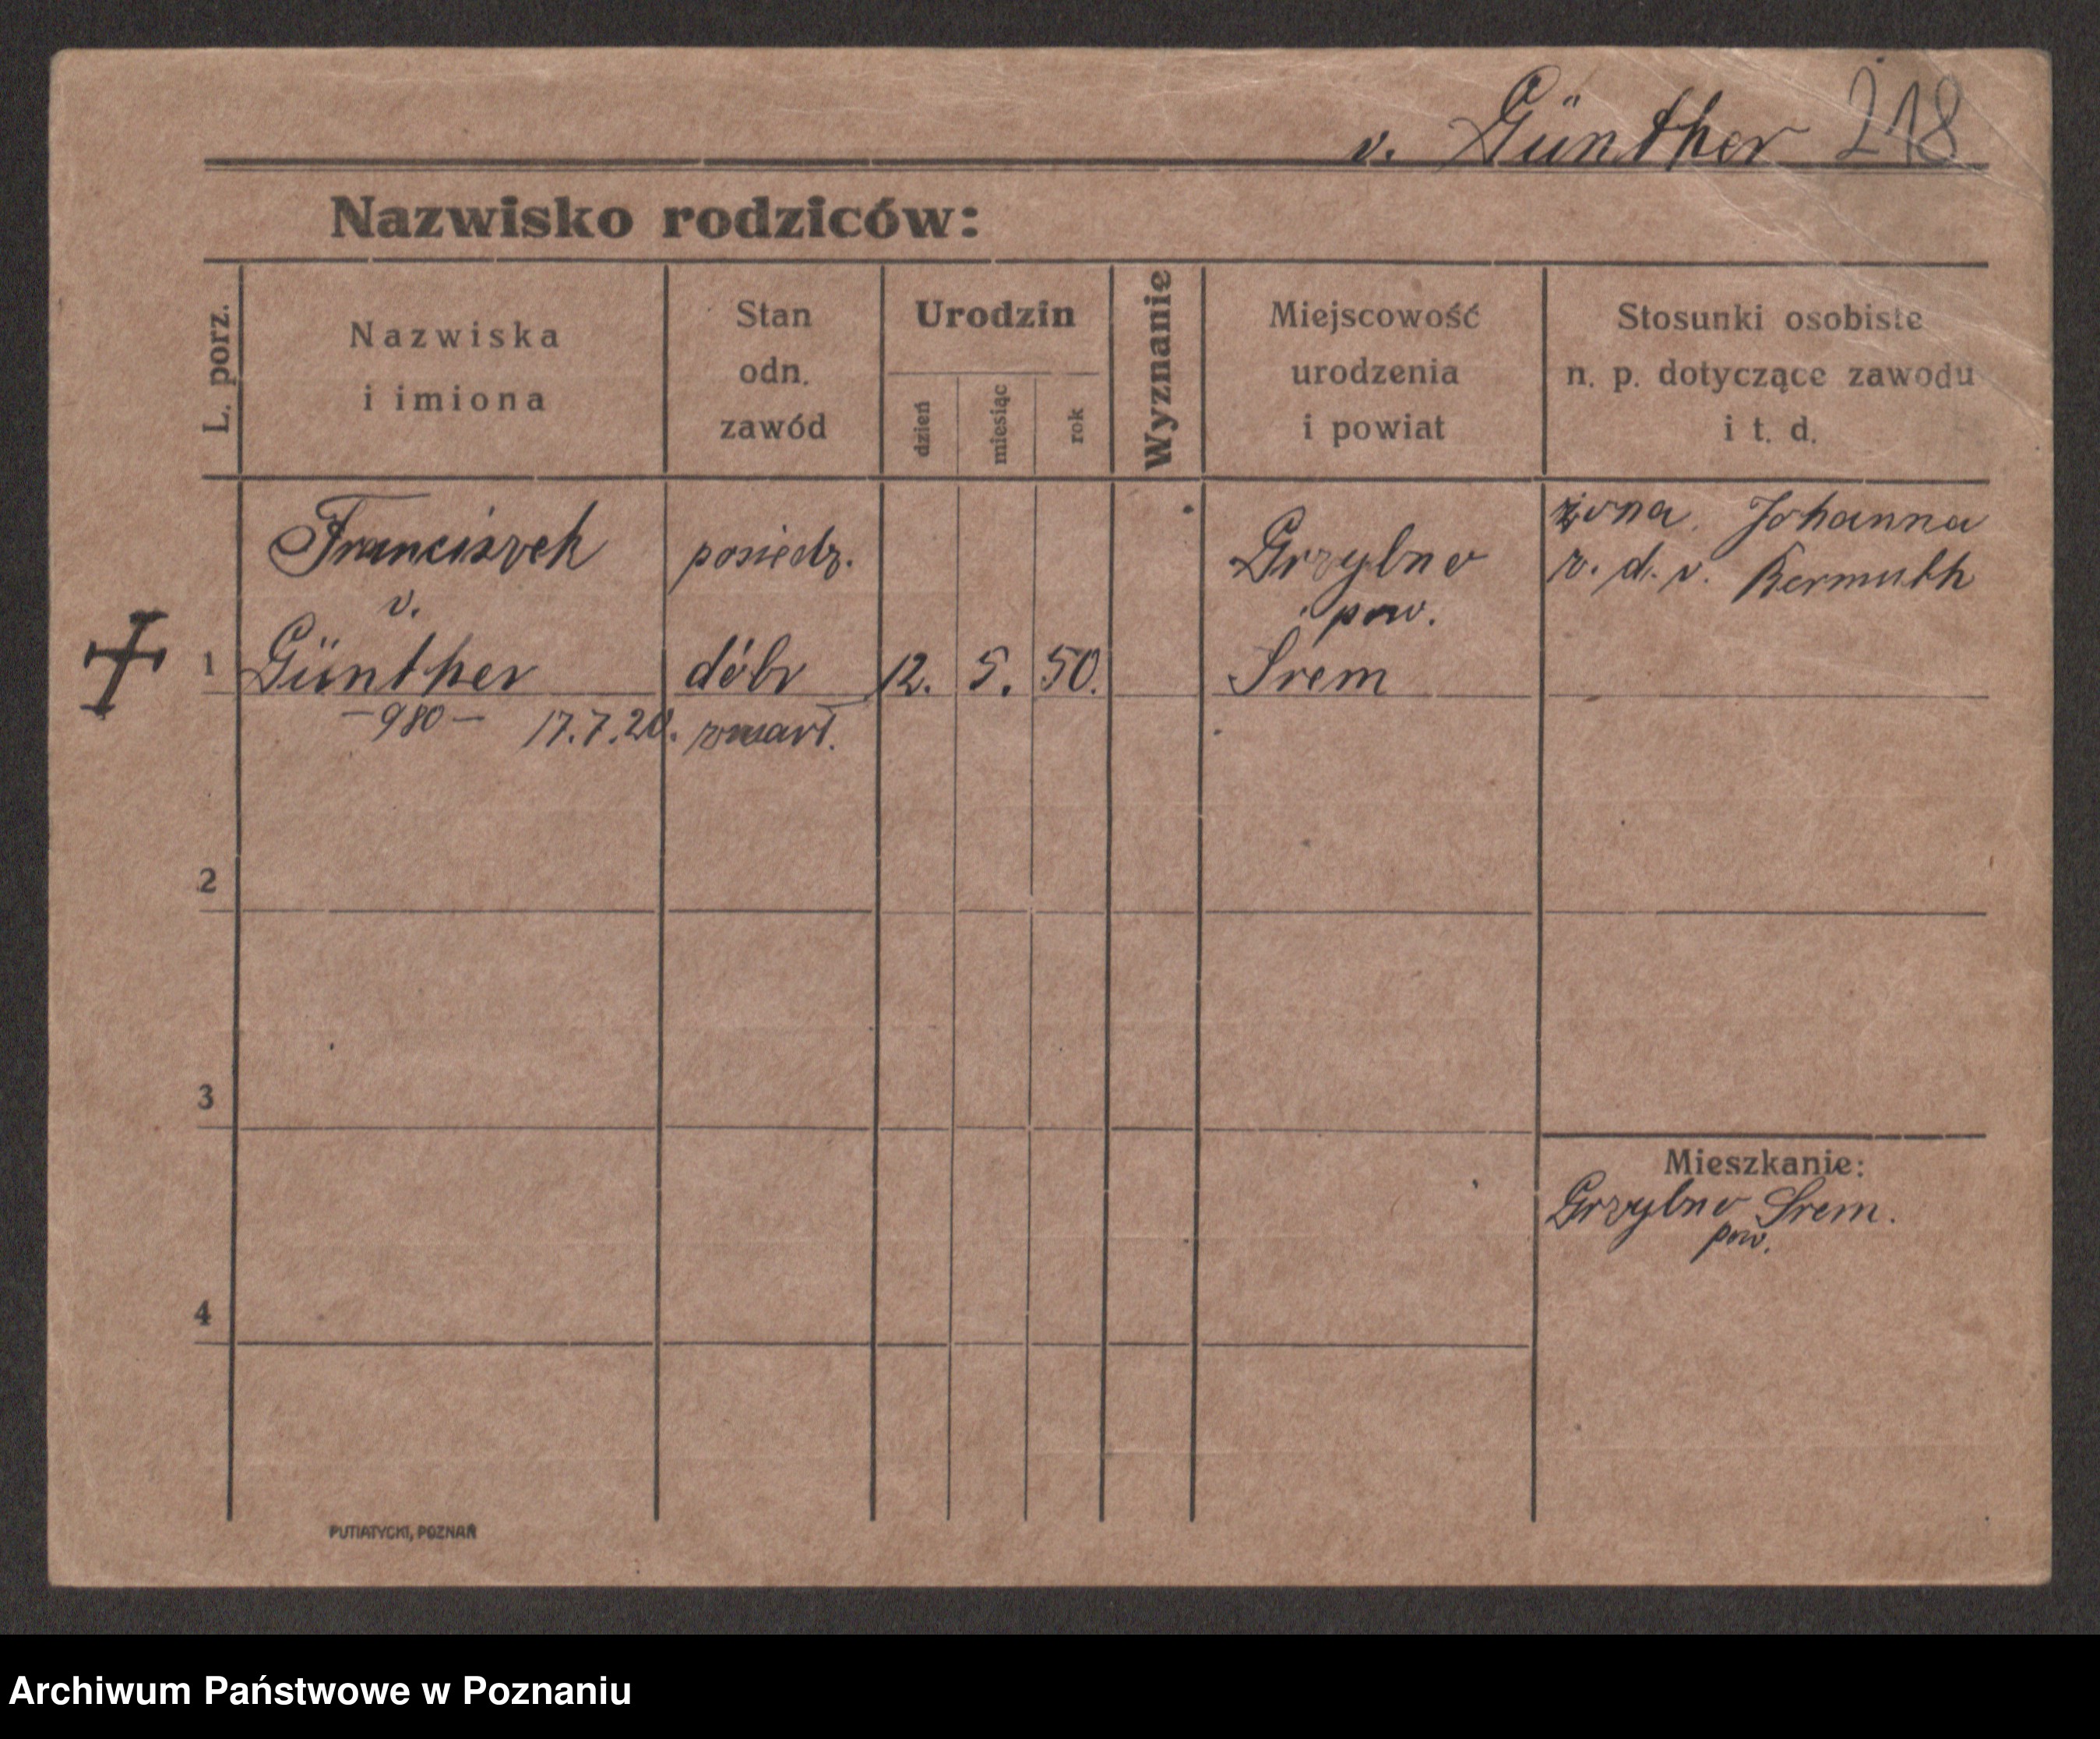 v. Günther 218
Nazwisko rodziców:
L. porz.
Nazwiska
i imiona
Stan
odn.
zawód
Urodzin
dzień
miesiąc
rok
Wyznanie
Miejscowość
urodzenia
i powiat
Stosunki osobiste
n. p. dotyczące zawodu
i t. d.
Franciszek
v.
1 Günther
posiedz.
dóbr
12. 5. 50.
Grzybno
pow.
Srem
żona Johanna
z. d. v. Bermuth
-980- 17.7.20. zmarł.
2
3
4
Mieszkanie:
Grzybno Srem.
pow.
PUTIATYCKI, POZNAŃ
Archiwum Państwowe w Poznaniu